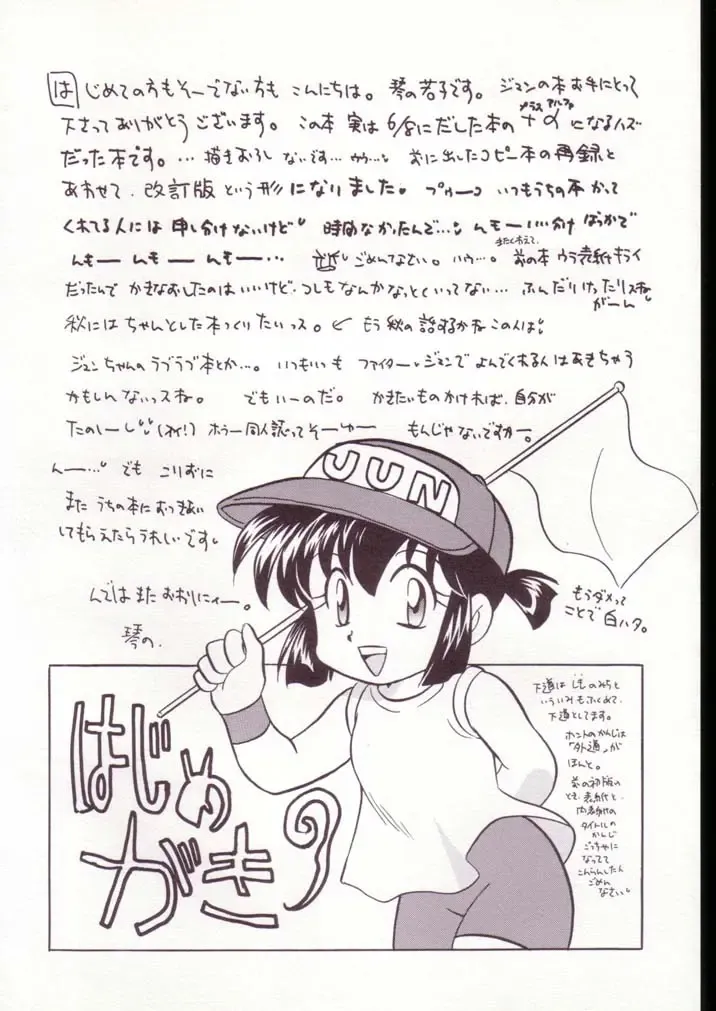 はじめての方もそーでない方も こんにちは。 琴の若子です。 ジュンの本お手にとって
下さってありがとうございます。 この本 実は 6/8にだした本の +α プラスアルファ になるハズ
だった本です。… 描きおろし ないです… ウゥ…。 前に出したコピー本の再録と
あわせて、改訂版 という形になりました。 いつもうちの本 かって
くれてる人には 申し分けないけど 時間なかったんで… んもー いい分け ばっかで
んもー んもー んもー… ごめんなさい。 ハウ…。 またくわえて、 前の本 ウラ表紙キライ
だったんで かきなおしたのはいいけど、コレもなんかなっとくいってない… ふんだりけったりスね
がーん
秋には ちゃんとした本つくりたいっス。 ← もう秋の話するかね この人は
ジュンちゃんのラブラブ本とか…。 いつもいつも ファイター・ジュンで よんでくれる人はあきちゃう
かもしんないっスね。 でもいーのだ。 かきたいものかければ、自分が
たのしーし (オイ!) ホラー 同人誌ってそーゆー もんじゃないですかー。
んー…。 でも こりずに
また うちの本におつきあい
してもらえたらうれしいです
んでは また おおにィー。
琴の.
JUN
もうダメって
ことで 白ハタ。
はじめ
がき
下道は しものみちと
いういみもふくめて、
下道としてます。
ホントのかんじは
「外道」が
ほんと。
前の初版の
とき、表紙と、
内表紙の
タイトルの
かんじ
ごっちゃに
なってて
こんらんしたん
ごめん
なさい